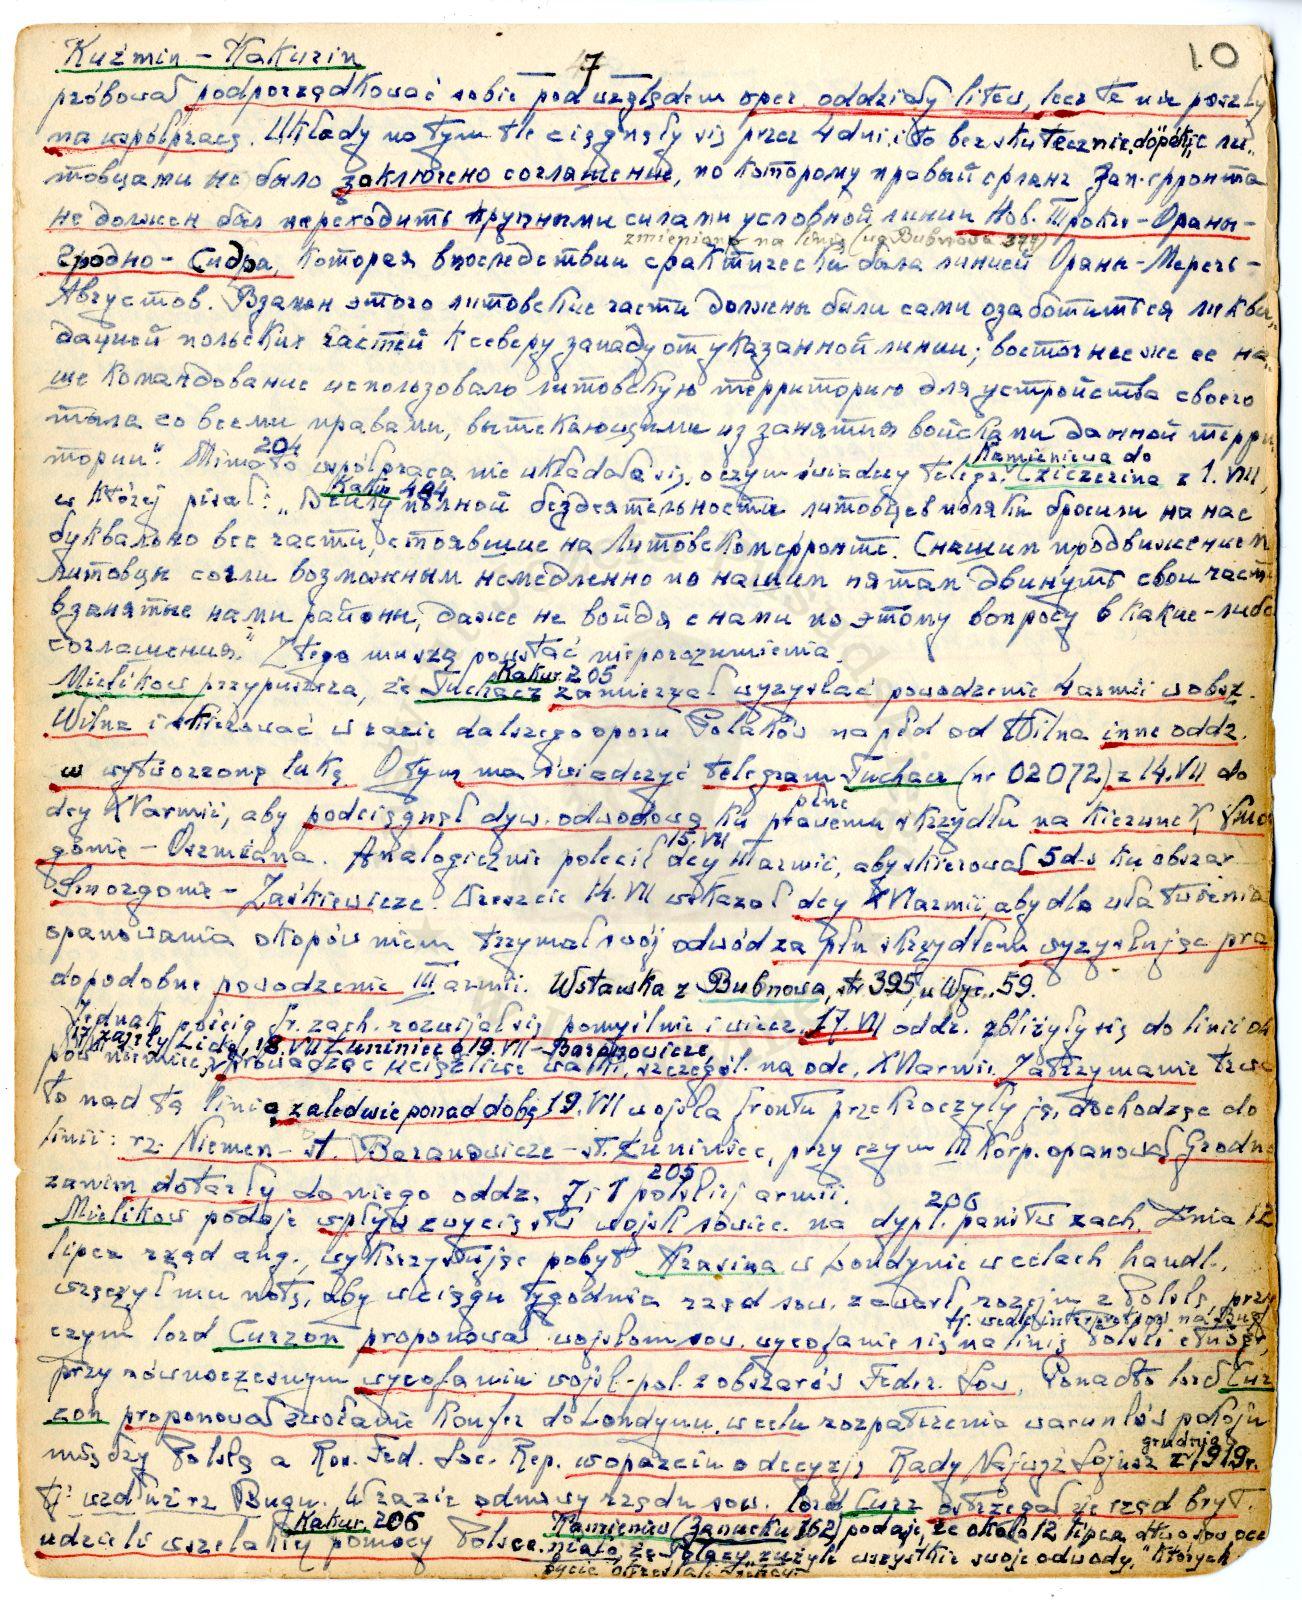 10
7
Kuźmin – Kakurin
próbował podporządkować sobie pod względem oper. oddziały litew, lecz te nie poszły
na współpracę. Układy na tym tle ciągnęły się przez 4 dni i to bezskutecznie, dopóki „с ли-
товцами не было заключено соглашение, по которому правый фланг Зап. фронта
не должен был переходить крупными силами условной линии Нов. Троки – Ораны –
zmieniono na linię (wg Bubnowa 394)
Гродно – Сидра, которая впоследствии фактически была линией Ораны – Меречь –
Августов. Взамен этого литовские части должны были сами озаботиться ликви-
дацией польских частей к северу западу от указанной линии; восточнее же ее на-
ше командование использовало литовскую территорию для устройства своего
тыла со всеми правами, вытекающими из занятия войсками данной терри-
204
тории". Mimo to współpraca nie układała się, o czym świadczy telegr. Cziczerina z 1. VII,
Kamieniewa do
Kakur 404
w której pisał: „Ввиду полной бездеятельности литовцев поляки бросили на нас
буквально все части, стоявшие на Литовском фронте. С нашим продвижением
литовцы сочли возможным немедленно по нашим пятам двинуть свои части
в занятые нами районы, даже не войдя с нами по этому вопросу в какие-либо
соглашения". Z tego muszą powstać nieporozumienia.
Kakur. 205
Mielikow przypuszcza, że Tuchacz zamierzał wyzyskać powodzenie 4 armii w obsz.
Wilna i skierować w razie dalszego oporu Polaków na płd od Wilna inne oddz.
w wytworzoną lukę. O tym ma świadczyć telegram Tuchacz (nr 02072) z 14. VII do
dcy XV armii, aby podciągnął dyw. odwodową ku prawemu skrzydłu na kierunek Smor
płnc
gonie – Oszmiana. Analogicznie polecił dcy III armii, aby skierował 5 d.s ku obszar
15. VII
Smorgonie – Zaśkiewicze. Wreszcie 14. VII wskazał dcy XVI armii, aby dla ułatwienia
opanowania okopów niem trzymał swój odwód za płn skrzydłem wyzyskując pra
dopodobne powodzenie III armii. Wstawka z Bubnowa, str 395, u Wyc. 59.
Jednak pościg fr. zach. rozwijał się pomyślnie i wiecz. 17. VII oddz. zbliżyły się do linii oko
17. VII zajęły Lidę, 18. VII Łuniniec a 19. VII – Baranowicze,
pów niemiec, prowadząc uciążliwe walki, szczegól. na odc. XVI armii. Zatrzymanie trwa
ło nad tą linią zaledwie ponad dobę, 19. VII wojska frontu przekroczyły ją, dochodząc do
linii: rz. Niemen – st. Baranowicze – st. Łuniniec, przy czym III Korp. opanował Grodno
zanim dotarły do niego oddz. 7 i 1 polskiej armii.
205
206
Mielikow podaje wpływ zwycięstw wojsk sowiec. na dypl. państw zach. Dnia 12
lipca rząd ang., wykorzystując pobyt Krasina w Londynie w celach handl.,
wręczył mu notę, aby w ciągu tygodnia rząd sow. zawarł rozejm z Polską, przy
tj. wedle interpretsow na Bug
czym lord Curzon proponował wojskom sow. wycofanie się na linię Polski etnogr,
przy równoczesnym wycofaniu wojsk pol. z obszarów Feder. Sow. Ponadto lord Cur
zon proponował zwołanie konfer do Londynu w celu rozpatrzenia warunków pokoju
między Polską a Ros. Fed. Soc. Rep. w oparciu o decyzję Rady Najwyż Sojusz z 1919r.
grudnia 8
tj. wzdłuż rz Bugu. W razie odmowy rządu sow. lord Curz ostrzegał że rząd bryt.
Kakur. 206
udzieli wszelakiej pomocy Polsce. Kamieniew (Zamietki 162) podaje, że około 12 lipca dtwo sow oce
niało, że Polacy zużyli wszystkie swoje odwody, „których